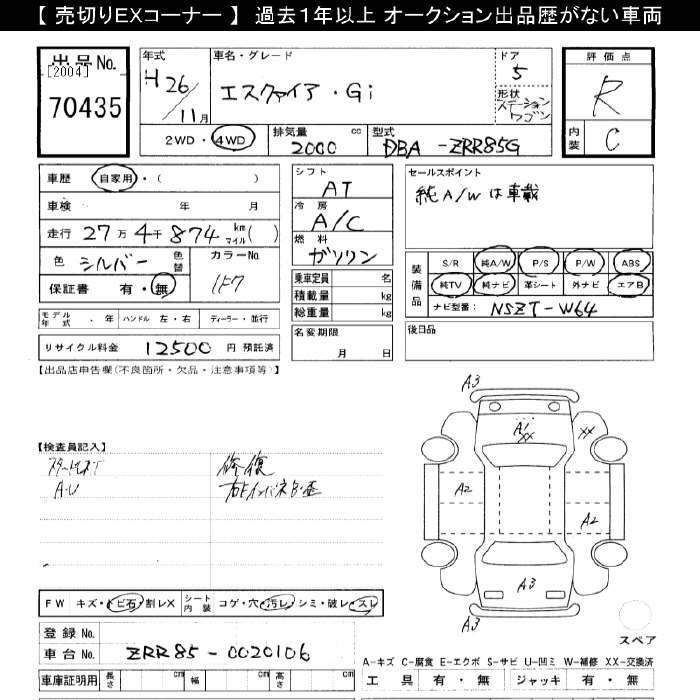 【 売切りEXコーナー 】 過去1年以上 オークション出品歴がない車両
出品No. [2004] 70435
年式 H26/11月
車名・グレード エスクァイア・Gi
ドア 5
形状 ステーションワゴン
評価点 R
内装 C
2WD・4WD
排気量 cc 2000
型式 DBA-ZRR85G
車歴 自家用・( )
車検 年 月
走行 27万4千874 km マイル( )
色 シルバー 色替
カラーNo. 1F7
保証書 有・無
モデル年式 ・ 年 ハンドル 左・右 ディーラー・並行
リサイクル料金 12500 円 預託済
シフト AT
冷房 A/C
燃料 ガソリン
乗車定員 名
積載量 kg
総重量 kg
名変期限
月 日
セールスポイント
純A/Wは車載
装備品
S/R 純A/W P/S P/W ABS
純TV 純ナビ 革シート 外ナビ エアB
ナビ型番: NSZT-W64
後日品
【出品店申告欄(不良箇所・欠品・注意事項等)】
【検査員記入】
A-U
修復
A3
A1
XX
XX
A2
A2
A3
A3
スペア
FW キズ・トビ石・割レX シート内装 コゲ・穴・汚レ・シミ・破レ・スレ
登録No.
車台No. ZRR85-0020106
車庫証明用 長さ cm 幅 cm 高さ cm
A-キズ C-腐食 E-エクボ S-サビ U-凹ミ W-補修 XX-交換済
工具 有・無 ジャッキ 有・無